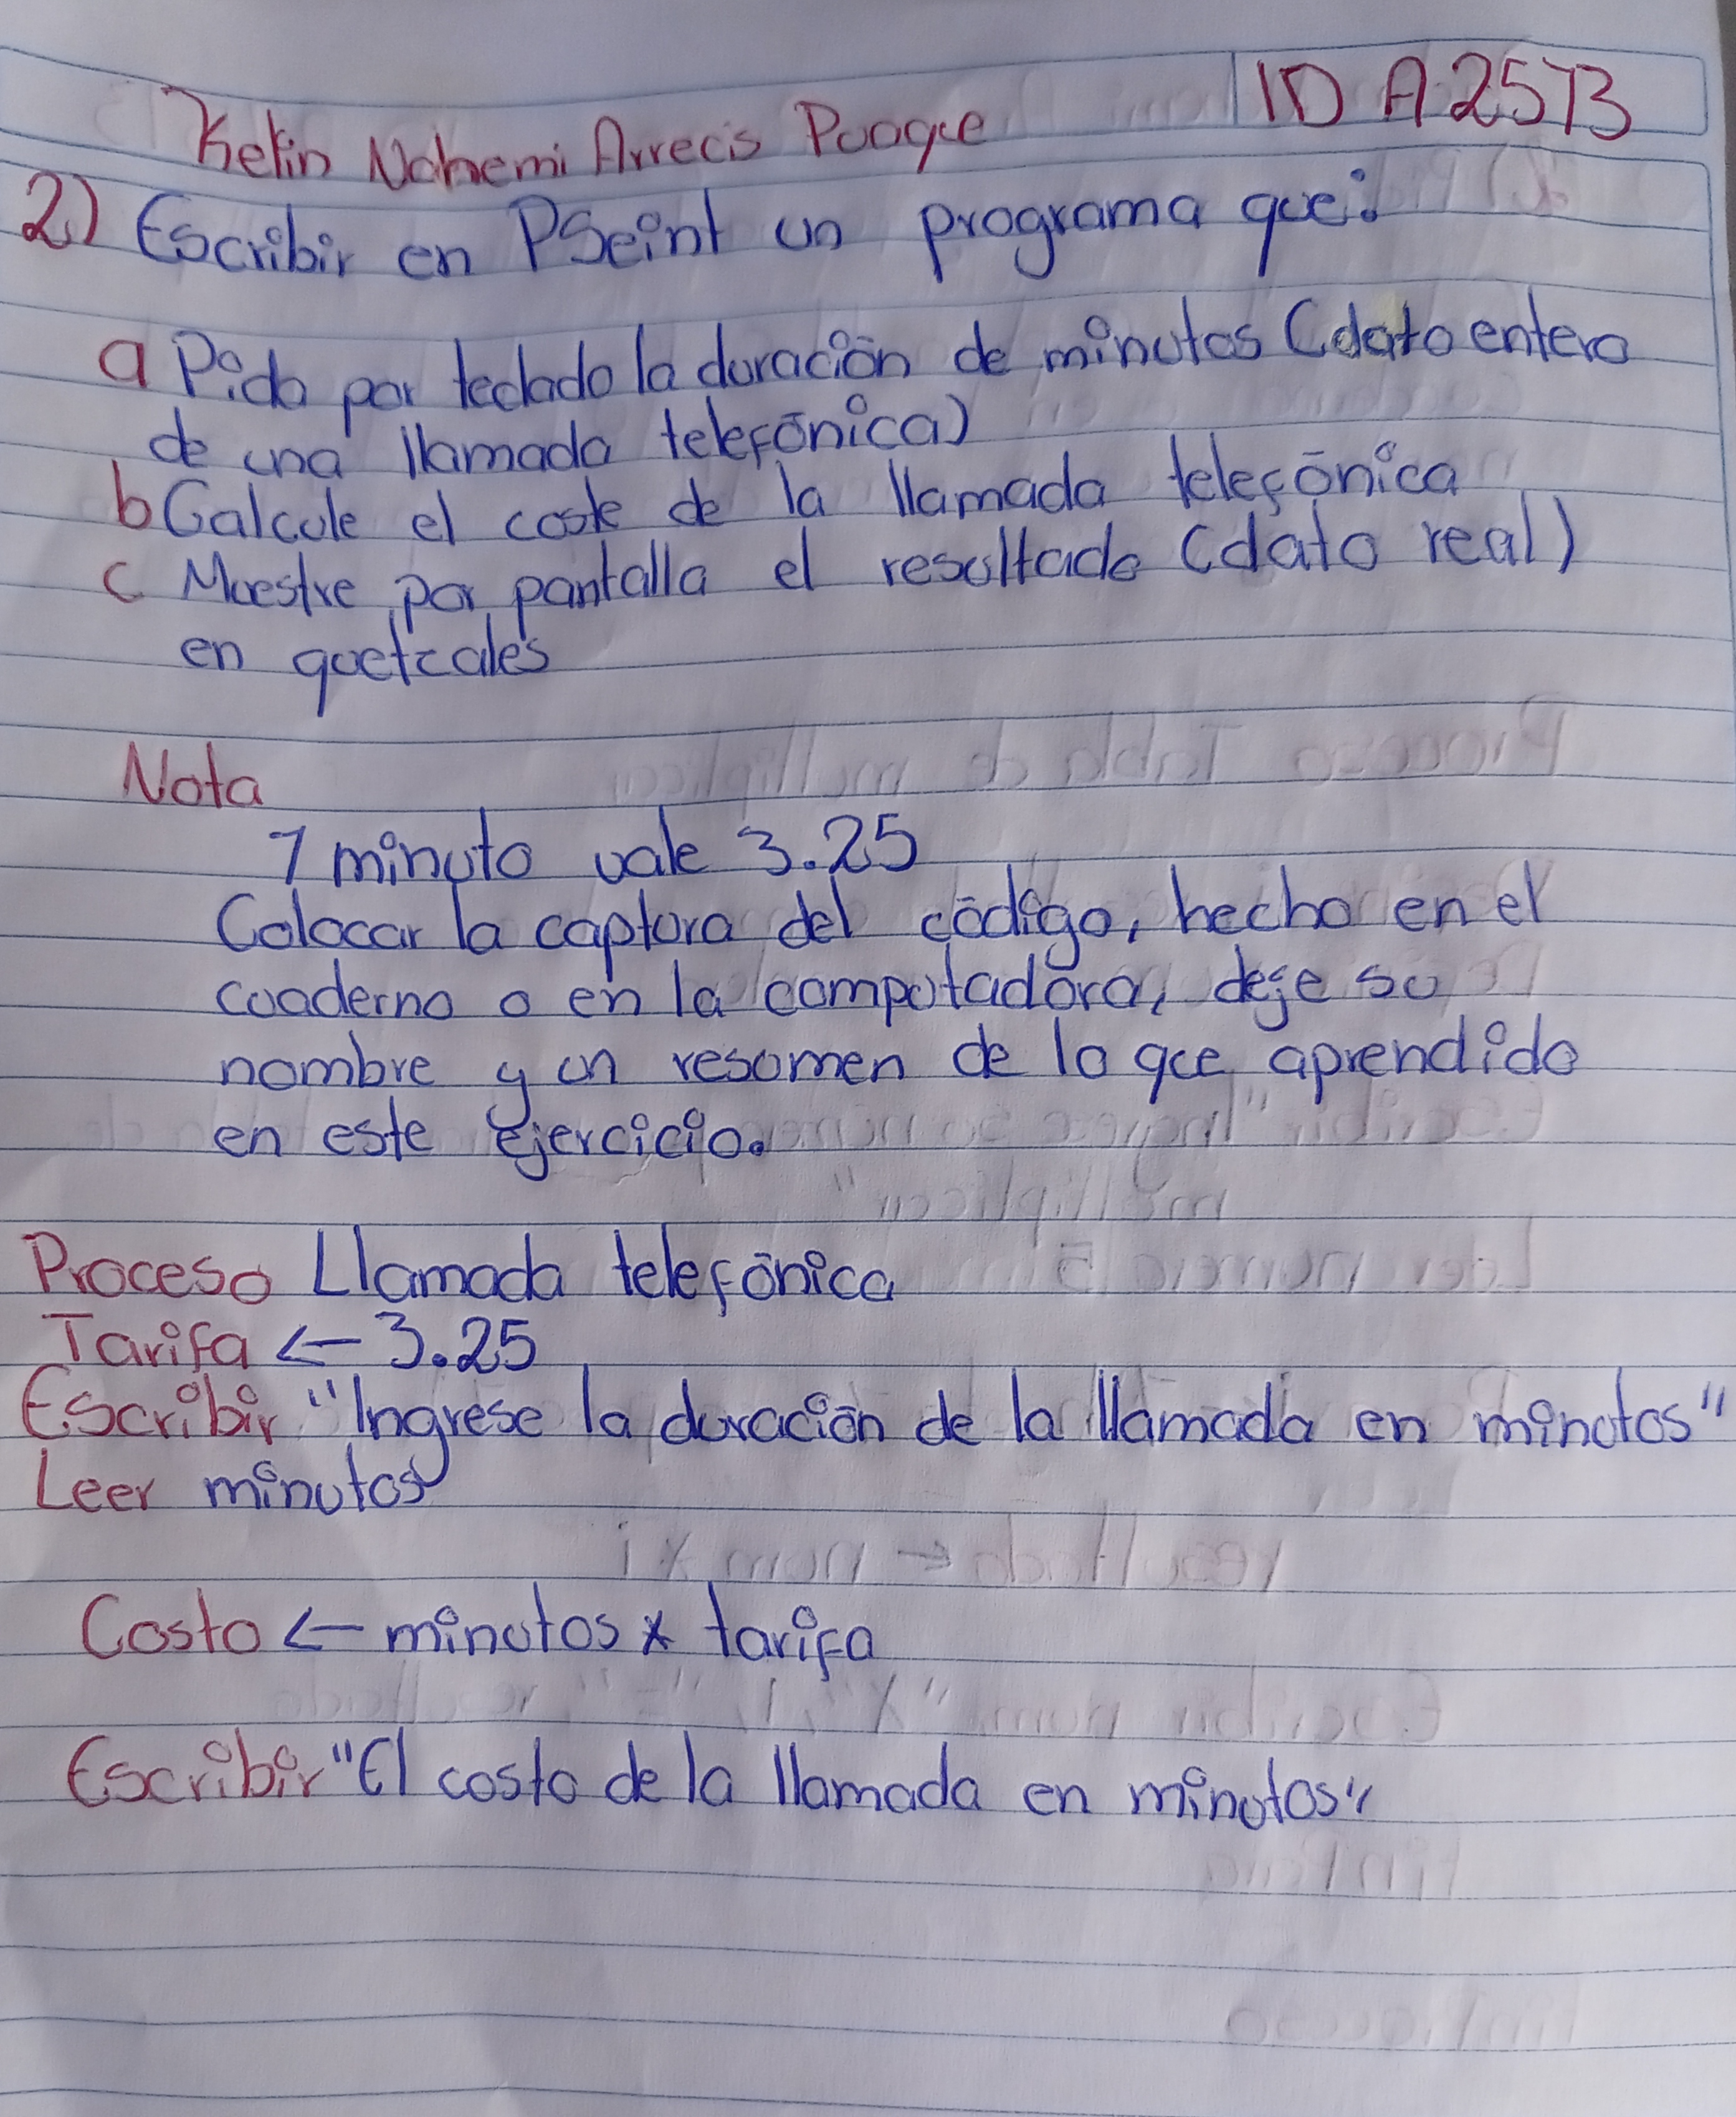 Kelin Nohemi Arrecis Puaque
ID A2573
2) Escribir en PSeint un programa que:
a Pida por teclado la duración de minutos (dato entero
de una llamada telefónica)
b Calcule el coste de la llamada telefónica
c Muestre por pantalla el resultado (dato real)
en quetzales
Nota
1 minuto vale 3.25
Colocar la captura del código, hecho en el
cuaderno o en la computadora, deje su
nombre y un resumen de lo que aprendido
en este ejercicio.
Proceso Llamada telefónica
Tarifa ← 3.25
Escribir "Ingrese la duración de la llamada en minutos"
Leer minutos
Costo ← minutos x tarifa
Escribir "El costo de la llamada en minutos"